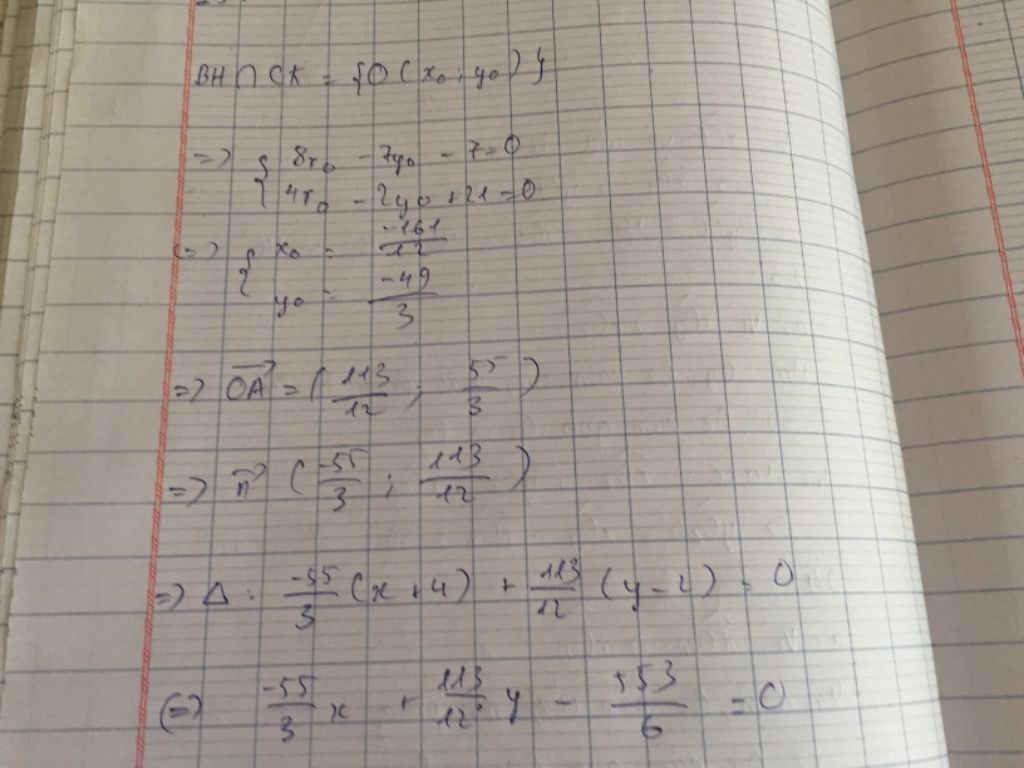 BH ∩ CK = {O(x₀; y₀)}
=> { 8x₀ - 7y₀ - 7 = 0
4x₀ - 2y₀ + 21 = 0
(=) { x₀ = -161/12
y₀ = -49/3
=> OA→ = (113/12; 55/3)
=> n→ (-55/3; 113/12)
=> Δ: -55/3 (x + 4) + 113/12 (y - 2) = 0
(=) -55/3 x + 113/12 y - 553/6 = 0